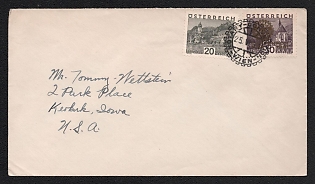 ÖSTERREICH ÖSTERREICH
20 30
WIEN
Mr. Tommy Wettstein
2 Park Place
Keokuk, Iowa
U.S.A.